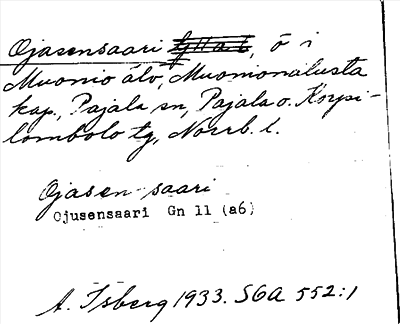 Ojasensaari, ö i
Muonio älv, Muonionalusta
kap., Pajala sn, Pajala o. Korpi-
lombolo tg, Norrb. l.
Ojasen-saari
Ojusensaari Gn 11 (a6)
A. Isberg 1933. SGA 552:1